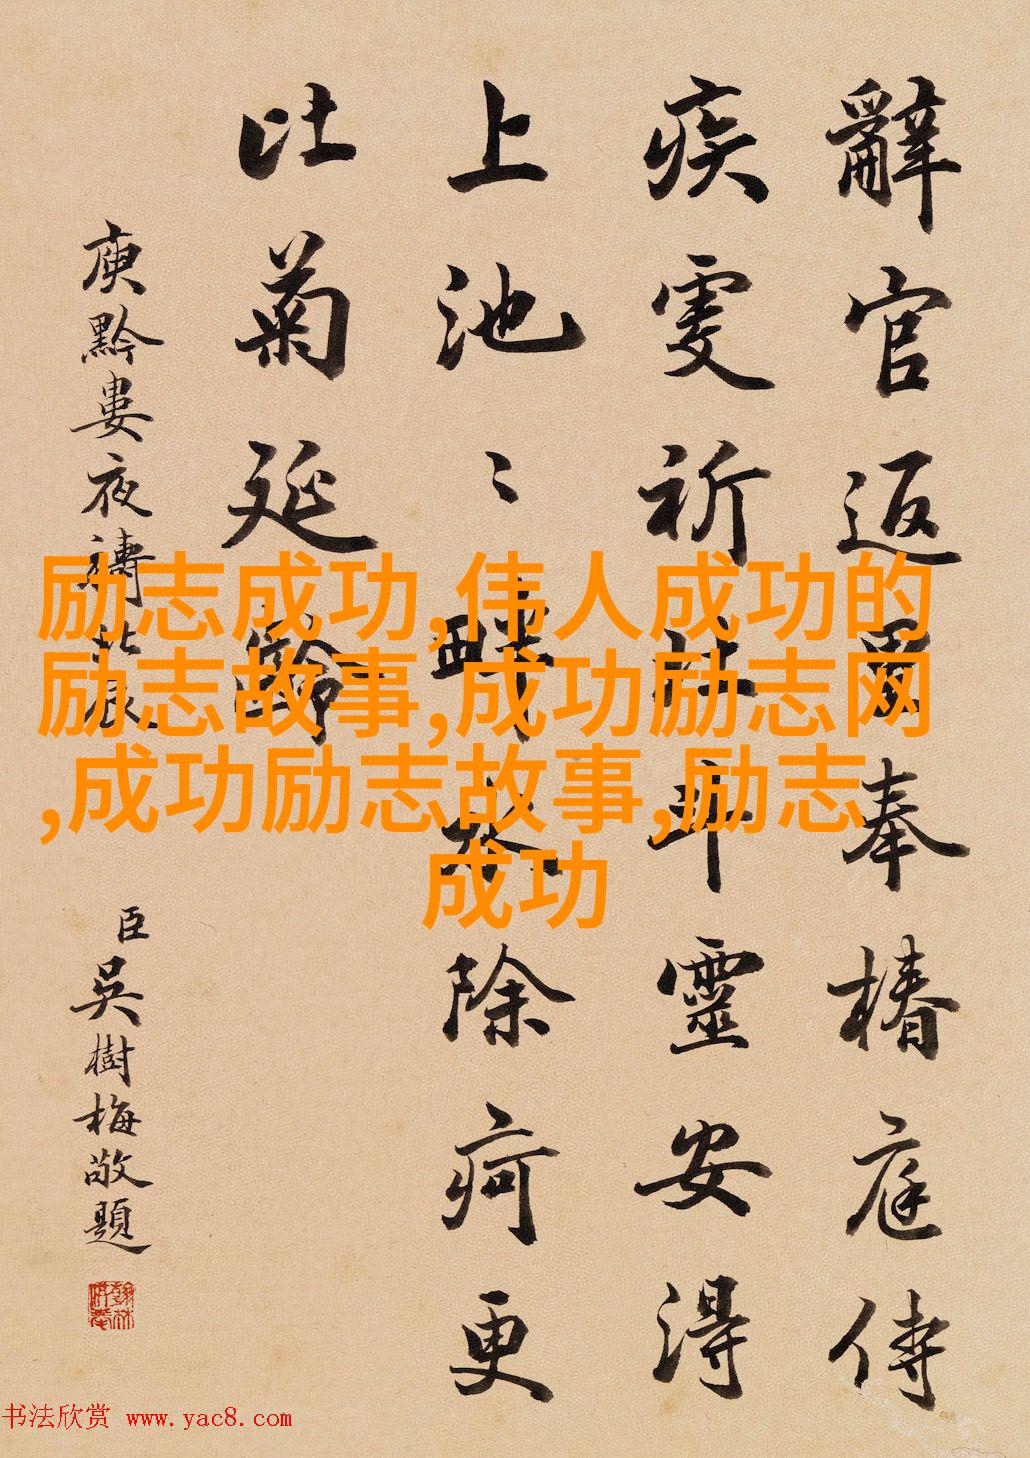 辭官返里奉椿庭侍
疾虔祈北斗靈安得
上池〻畔水除疴更
比菊延齡
庾黔婁夜禱北辰
臣吳樹梅敬題
励志成功,伟人成功的
励志故事,成功励志网
,成功励志故事,励志
成功
书法欣赏 www.yac8.com